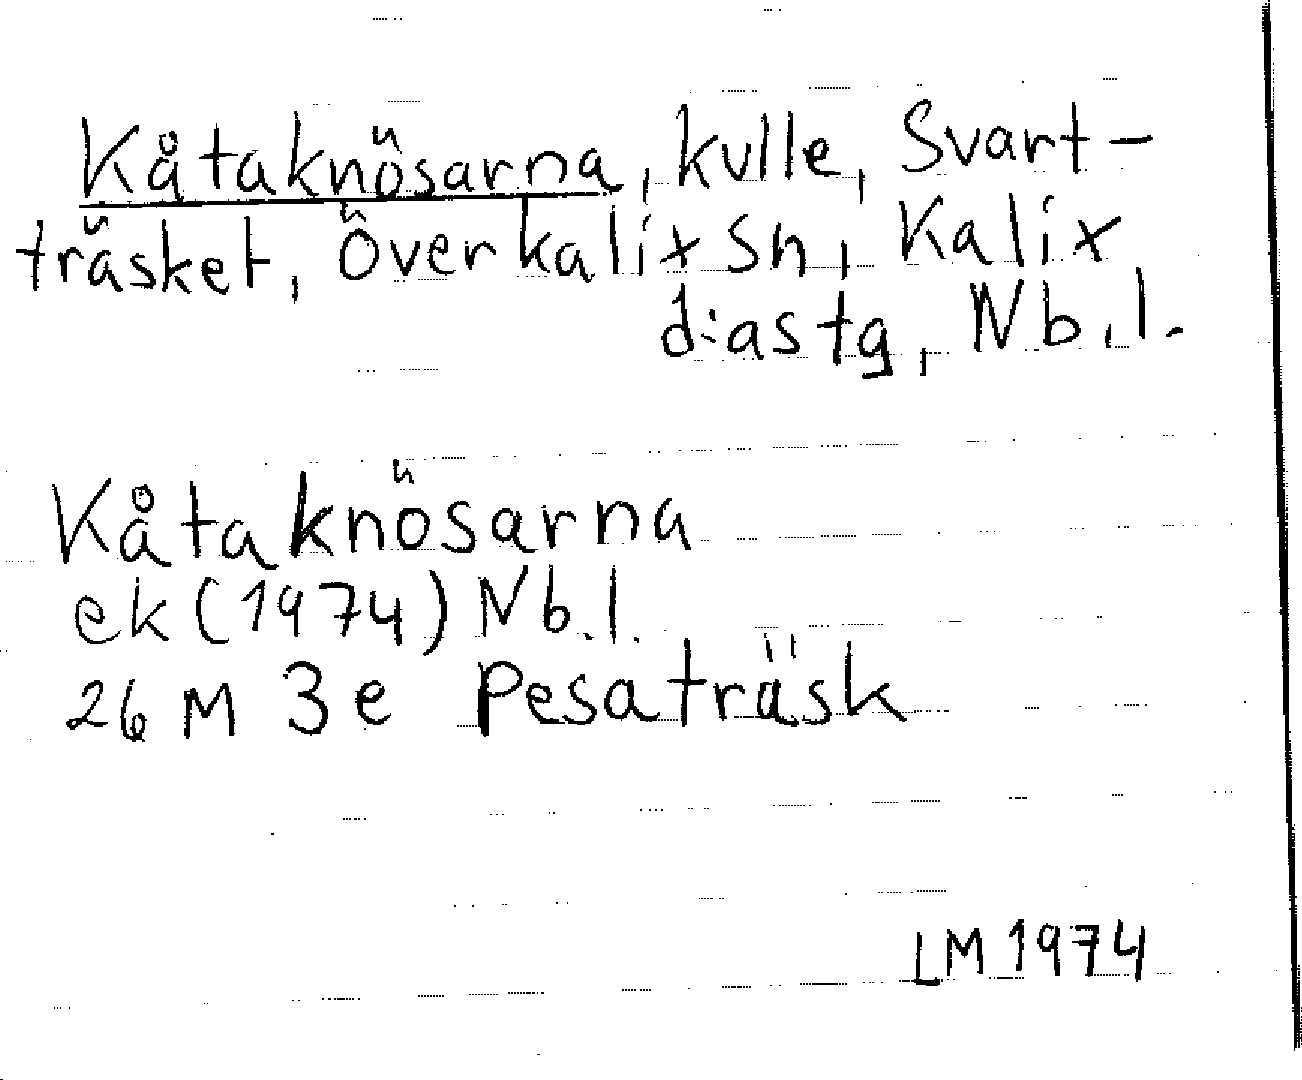 Kåtaknösarna, kulle, Svart-
träsket, Överkalix sn, Kalix
d:astg, Nb.l.
Kåtaknösarna
ek (1974) Nb.l.
26 M 3e Pesaträsk
LM 1974